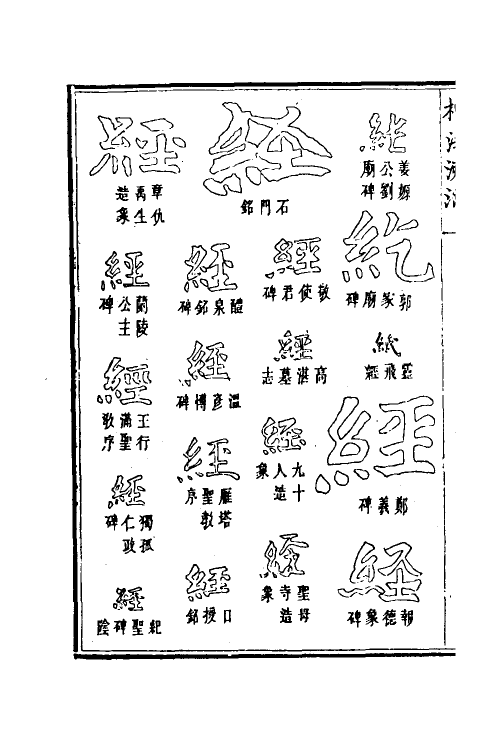 姜嫄公劉廟碑
紇
郭家廟碑
紙
靈飛經
經
鄭義碑
経
報德象碑
経
石門銘
經
敬使君碑
經
高湛墓志
經
九十人造象
經
聖母寺造象
經
醴泉銘碑
經
溫彥博碑
經
雁塔聖教序
經
口授銘
經
章仇禹生造象
經
蘭陵公主碑
經
王行滿聖教序
經
獨孤仁政碑
經
紀聖碑陰